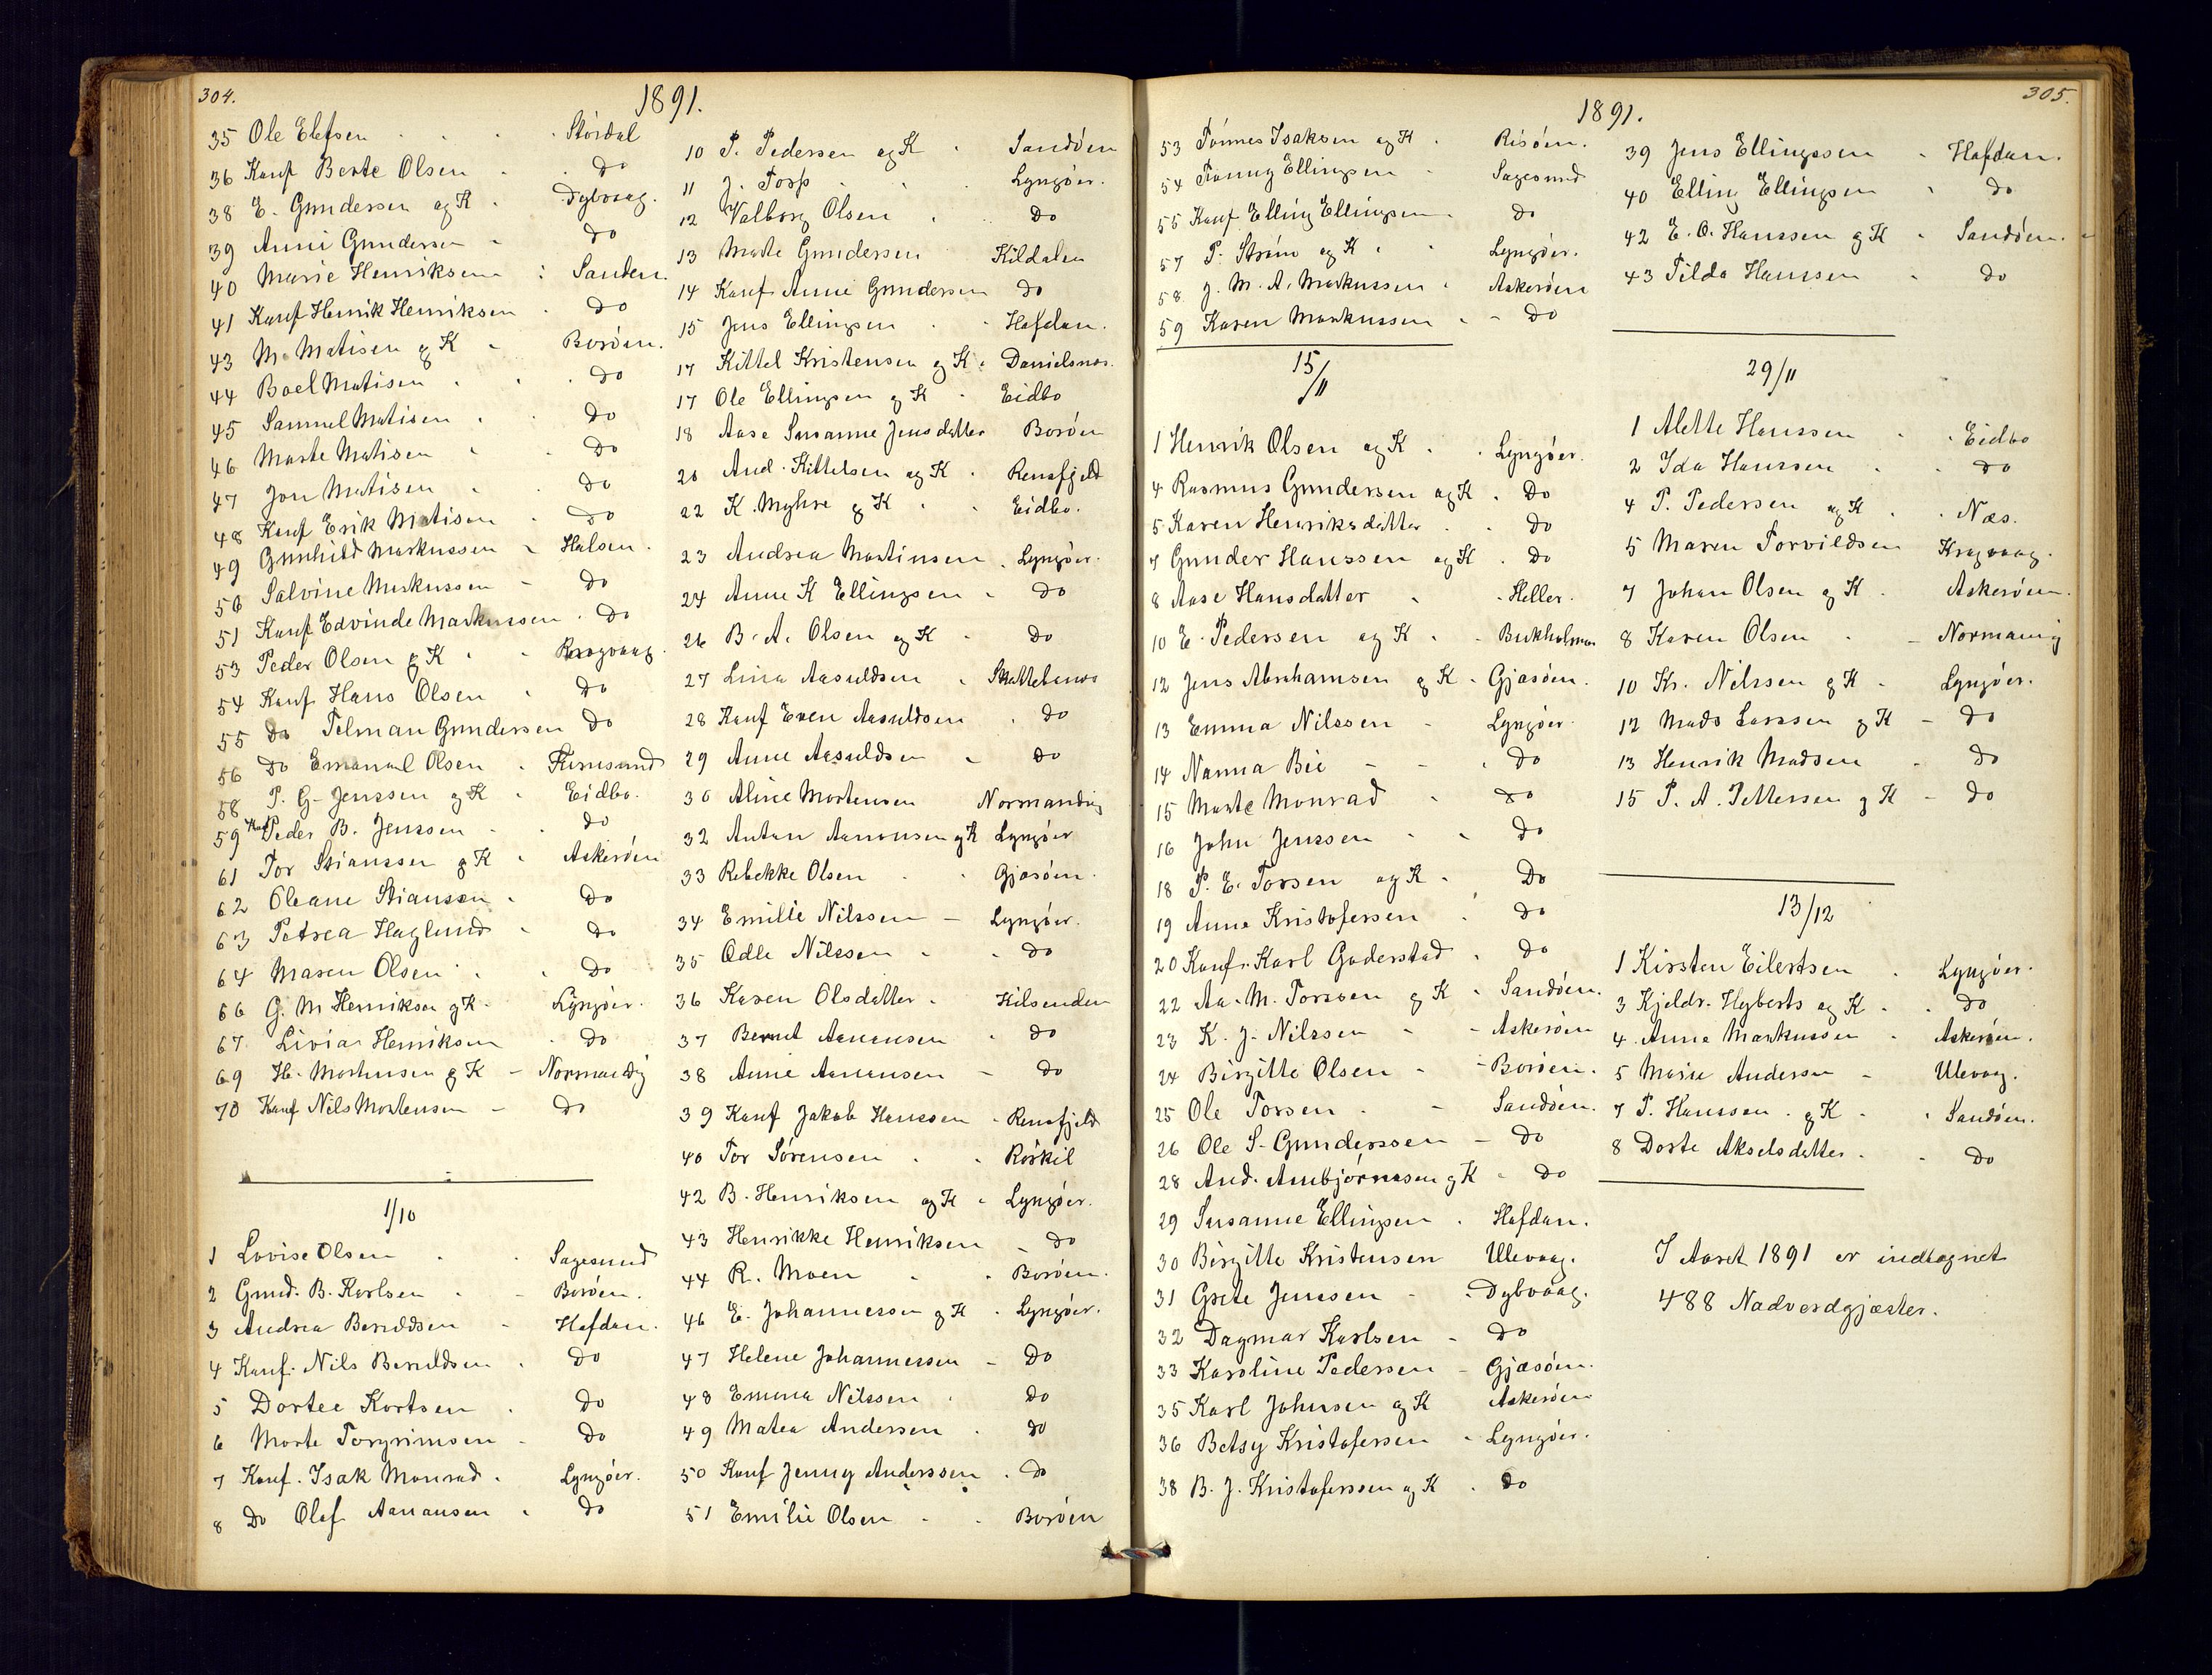 304.
1891.
35 Ole Elefsen Stórdal
36 Konf Berte Olsen Do
38 E. Gundersen og K Dybvaag.
39 Anni Gundersen Do
40 Marie Henriksen Sanden.
41 Konf Henrik Henriksen Do
43 M. Matisen og K Boróen.
44 Boel Matisen Do
45 Samuel Matisen Do
46 Marte Matisen Do
47 Jon Matisen Do
48 Konf Erik Matisen Do
49 Gunhild Markussen Halsen.
50 Salvine Markussen Do
51 Konf Edvinde Markussen Do
53 Peder Olsen og K Kragvaag.
54 Konf Hans Olsen Do
55 Do Telman Gundersen Do
56 Do Emanuel Olsen Furusund
58 P. G. Jenssen og K Eidbo.
59 Konf Peder B. Jenssen Do
61 Tor Stianssen og K Askeróen
62 Oleane Stianssen Do
63 Petrea Haglund Do
64 Maren Olsen Do
66 G. M Henriksen og K. Lyngóer.
67 Livia Henriksen Do
69 H. Mortensen og K Normandvig
70 Konf Nils Mortensen Do
1/10
1 Lovise Olsen Sagesund
2 Gund. B. Karlsen Boróen.
3 Andrea Beruldsen Hafdan.
4 Konf. Nils Beruldsen Do
5 Dortee Kortsen Do
6 Marte Torgrimsen Do
7 Konf. Isak Monrad. Lyngóer.
8 Do Olaf Aanonsen Do
10 P. Pedersen og K Sandóen
11 J. Torp Lyngóer.
12 Valborg Olsen Do
13 Marte Gundersen Kildalen
14 Konf Anne Gundersen Do
15 Jens Ellingsen Hafdan.
17 Kittel Kristensen og K Danielsnes.
17 Ole Ellingsen og K Eidbo
18 Aase Susanne Jensdatter Boróen
20 And. Kittelsen og K Rensfjeld
22 K. Myhre og K Eidbo.
23 Andrea Martinsen Lyngóer.
24 Anne K Ellingsen Do
26 B. A. Olsen og K Do
27 Lina Aasuldsen Skattebunes
28 Konf Even Aasuldsen Do
29 Anne Aasuldsen Do
30 Aline Mortensen Normandvig
32 Anton Aanonsen og K Lyngóer
33 Rebekke Olsen Gjæsóen.
34 Emilie Nilssen Lyngóer.
35 Odle Nilssen Do
36 Karen Olsdatter Kilsenden
37 Bernt Aanonsen Do
38 Anne Aanonsen Do
39 Konf Jakob Hanssen Rensfjeld
40 Tor Sórensen Róskil
42 B. Henriksen og K Lyngóer.
43 Henrikke Henriksen Do
44 R. Moen Boróen.
46 E. Johannessen og K Lyngóer.
47 Helene Johannessen Do
48 Emma Nilssen Do
49 Matea Andersen Do
50 Konf Jenny Anderssen Do
51 Emilie Olsen Boróen
305.
1891.
53 Tónnes Isaksen og K Risóen.
54 Fanny Ellingsen Sagesund
55 Konf Elling Ellingsen Do
57 P. Strøm og K Lyngóer.
58 J. M. A. Markussen Askeróen
59 Karen Markussen Do
15/11
1 Henrik Olsen og K Lyngóer.
4 Rasmus Gundersen og K Do
5 Karen Henriksdatter Do
7 Gunder Hanssen og K Do
8 Aase Hansdatter Heller.
10 E. Pedersen og K Bukholmen
12 Jens Abrahamsen og K Gjæsóen.
13 Emma Nilssen Lyngóer.
14 Nanna Bie Do
15 Marte Monrad Do
16 John Jenssen Do
18 P. E. Torsen og K Do
19 Anne Kristofersen Do
20 Konf. Karl Goderstad Do
22 Aa. M. Torssen og K Sandóen.
23 K. J. Nilssen Askeróen
24 Birgitte Olsen Boróen.
25 Ole Torsen Sandóen.
26 Ole S. Gunderssen Do
28 And. Aanbjórnssen og K Do
29 Susanne Ellingsen Hafdan.
30 Birgitte Kristensen Ulevaag.
31 Grete Jenssen Dybvaag.
32 Dagmar Karlsen Do
33 Karoline Pedersen Gjæsóen.
35 Karl Johnsen og K Askeróen
36 Betsy Kristofersen Lyngóer.
38 B. J. Kristoferssen og K Do
39 Jens Ellingssen Hafdan.
40 Elling Ellingsen Do
42 E. O. Hanssen og K Sandóen.
43 Tilda Hanssen Do
29/11
1 Alette Hanssen Eidbo
2 Ida Hanssen Do
4 P. Pedersen og K Næs.
5 Maren Torvildsen Kragvaag.
7 Johan Olsen og K Askeróen.
8 Karen Olsen Normanvig
10 Kr. Nilssen og K Lyngóer.
12 Mads Larssen og K Do
13 Henrik Madsen Do
15 P. A. Pettersen og K Do
13/12
1 Kirsten Eilertsen Lyngóer.
3 Kjeldr. Hyberts og K Do
4 Anne Markussen Askeróen.
5 Marie Andersen Ulevag.
7 T. Hanssen og K Sandóen.
8 Dorte Akselsdatter Do
I Aaret 1891 er indtegnet
488 Nadverdgjæster.